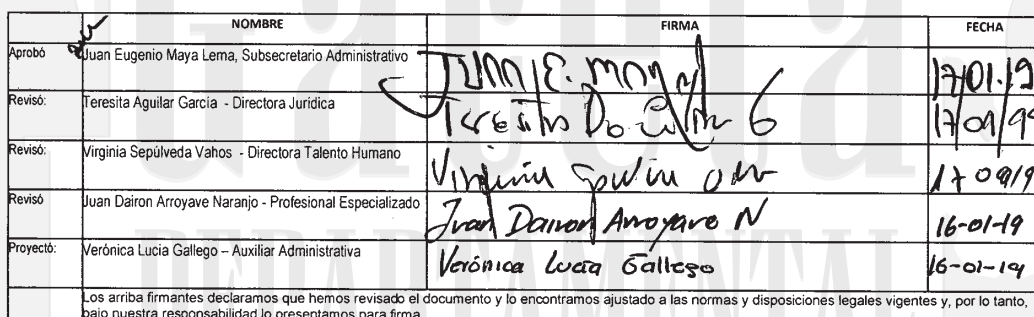 NOMBRE FIRMA FECHA
Aprobó Juan Eugenio Maya Lema, Subsecretario Administrativo JUAN E. MAYA 17/01.19
Revisó: Teresita Aguilar García - Directora Jurídica Teresita 17/
Revisó: Virginia Sepúlveda Vahos - Directora Talento Humano Virginia 17
Revisó Juan Dairon Arroyave Naranjo - Profesional Especializado Juan Dairon Arroyave N 16-01-19
Proyectó: Verónica Lucia Gallego – Auxiliar Administrativa Verónica Lucía Gallego 16-01-19
Los arriba firmantes declaramos que hemos revisado el documento y lo encontramos ajustado a las normas y disposiciones legales vigentes y, por lo tanto,
bajo nuestra responsabilidad lo presentamos para firma
DEPARTAMENTAL